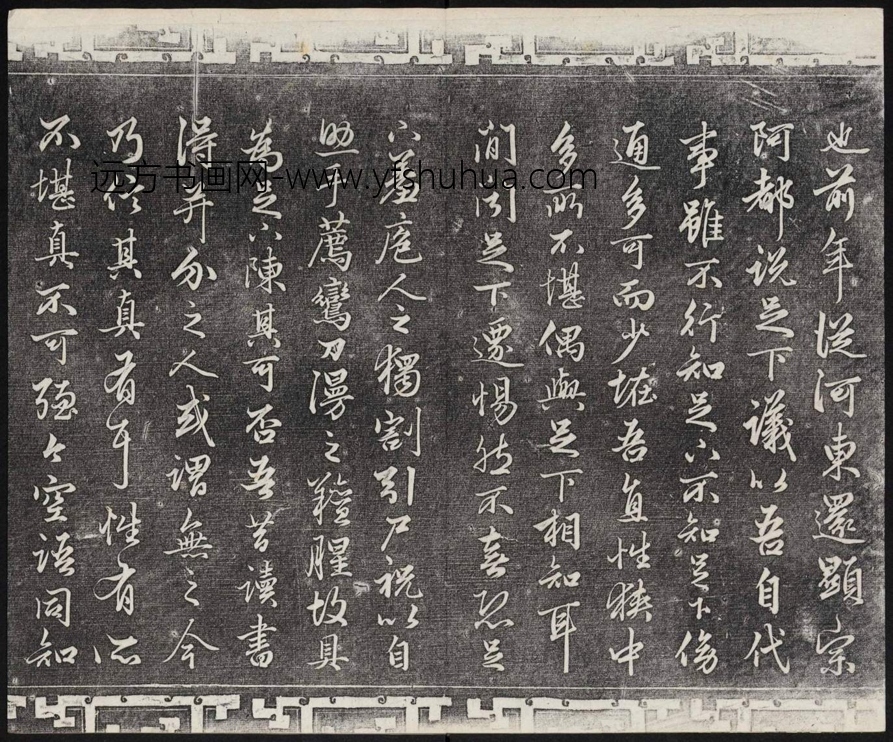 也前年從河東還顯宗
阿都說足下議以吾自代
事雖不行知足下不知足下傍
通多可而少怪吾直性狹中
多所不堪偶與足下相知耳
間聞足下遷惕然不喜恐足
下羞庖人之獨割引尸祝以自
助手薦鸞刀漫之羶腥故具
為足下陳其可否吾昔讀書
得并介之人或謂無之今
乃信其真有耳性有所
不堪真不可強今空語同知
远方书画网-www.yfshuhua.com